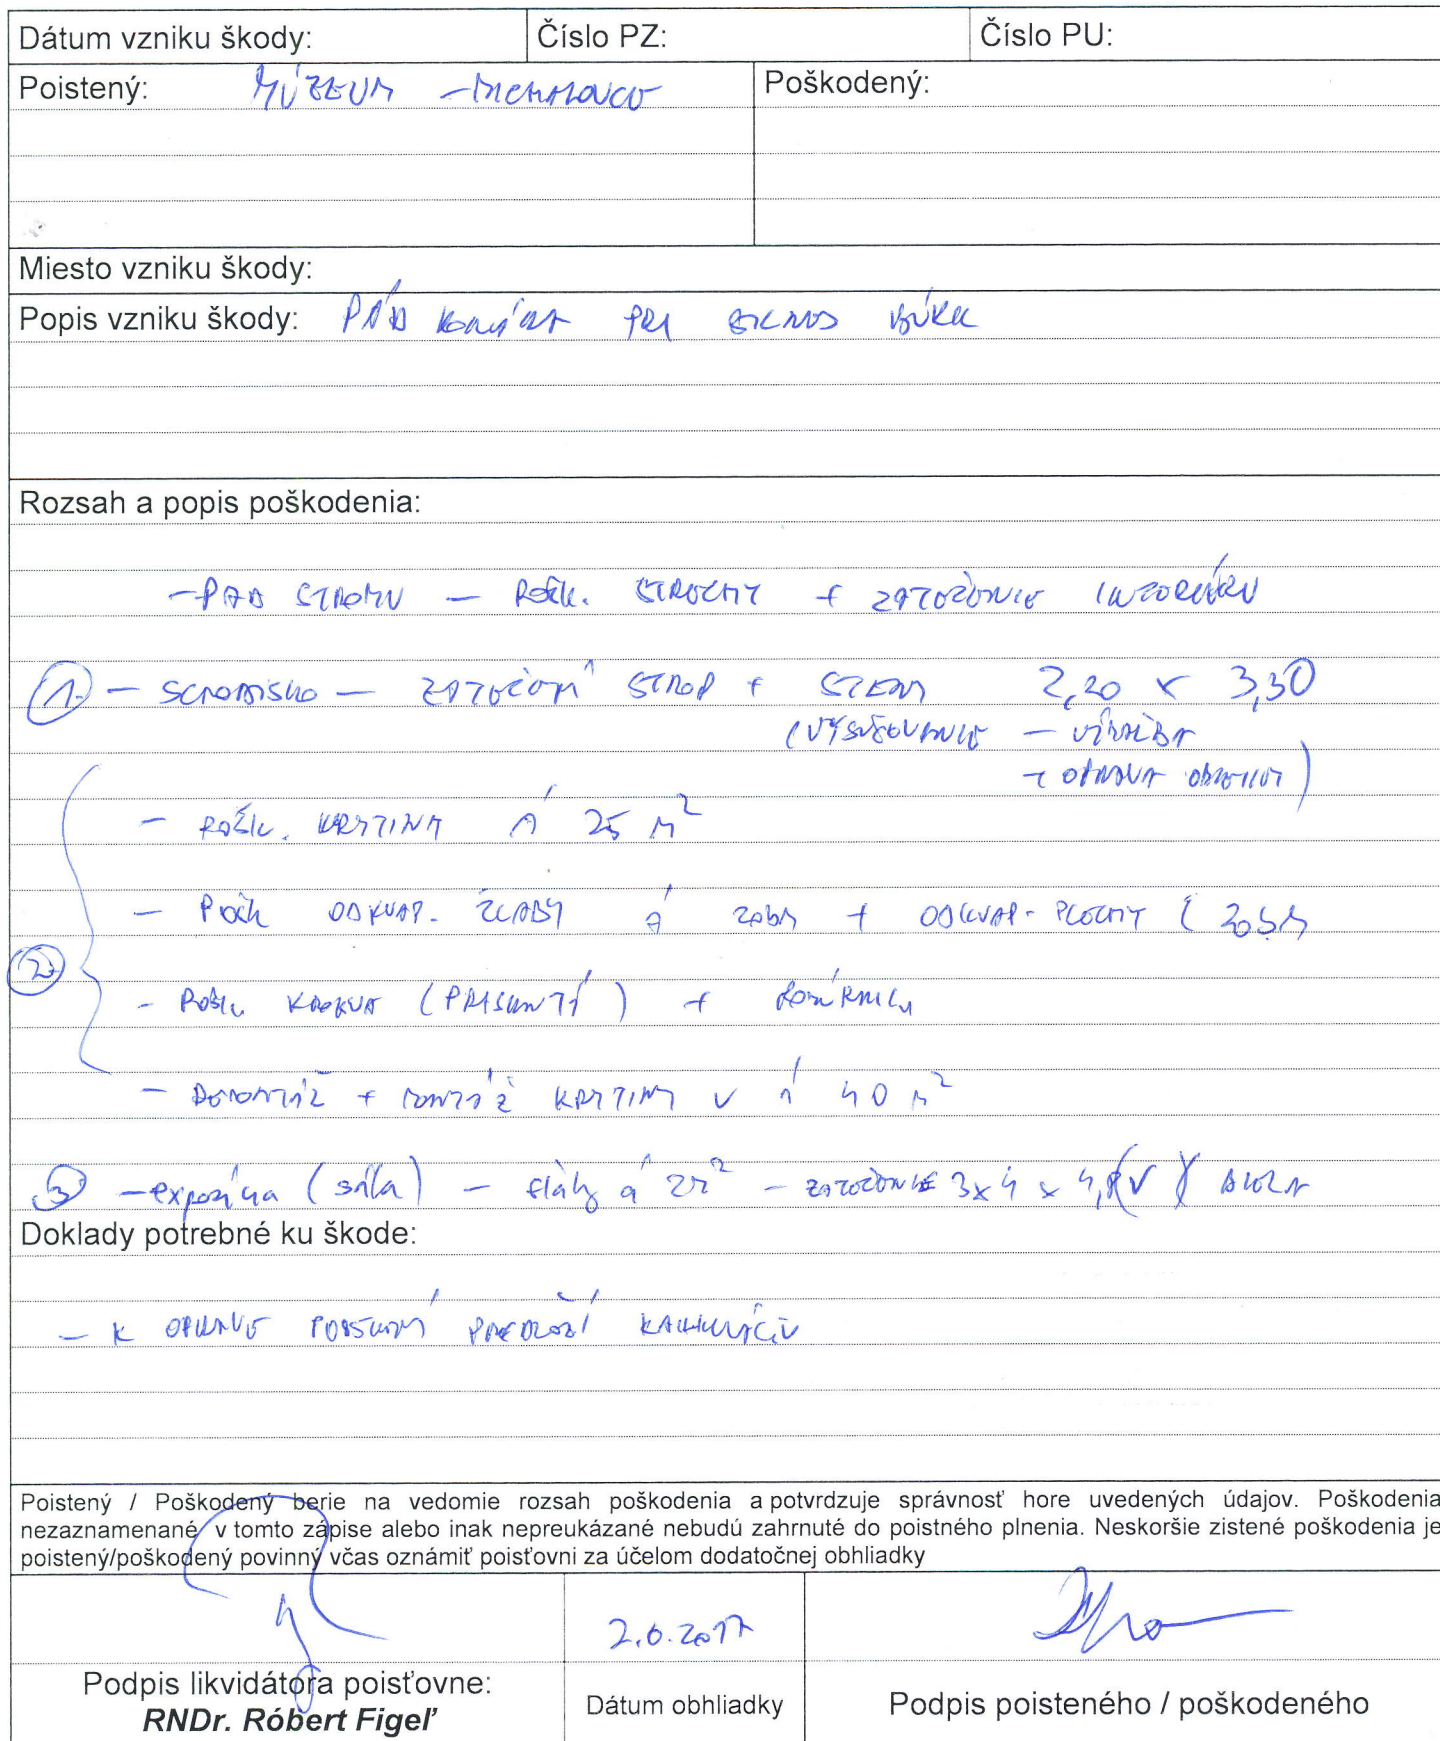 Dátum vzniku škody: Číslo PZ: Číslo PU:
Poistený: MÚZEUM - MICHALOVCE Poškodený:
Miesto vzniku škody:
Popis vzniku škody: PÁD PRI BÚRKE
Rozsah a popis poškodenia:
- PÁD STROMU - POŠK. STRECHY + ZATEČENIE INTERIÉRU
1. - SCHODISKO - ZATEČENÝ STROP + STENY 2,20 x 3,30
(VYSUŠOVANIE - MAĽBA
+ OPRAVA OMIETKY)
- POŠK. KRYTINA Á 25 M²
2. - POŠK ODKVAP. ŽĽABY Á + ODKVAP. PLECHY (
- POŠK KROKVA ( ) + POMÚRNICA
- DEMONTÁŽ + MONTÁŽ KRYTINY V Á 40 M²
3 - expozícia (sála) - fľaky á 2 - ZATEČENIE 3 x 4 x
Doklady potrebné ku škode:
- K OPRAVE PREDLOŽÍ KALKULÁCIU
Poistený / Poškodený berie na vedomie rozsah poškodenia a potvrdzuje správnosť hore uvedených údajov. Poškodenia
nezaznamenané v tomto zápise alebo inak nepreukázané nebudú zahrnuté do poistného plnenia. Neskoršie zistené poškodenia je
poistený/poškodený povinný včas oznámiť poisťovni za účelom dodatočnej obhliadky
2.6.2017
Podpis likvidátora poisťovne: Dátum obhliadky Podpis poisteného / poškodeného
RNDr. Róbert Figeľ